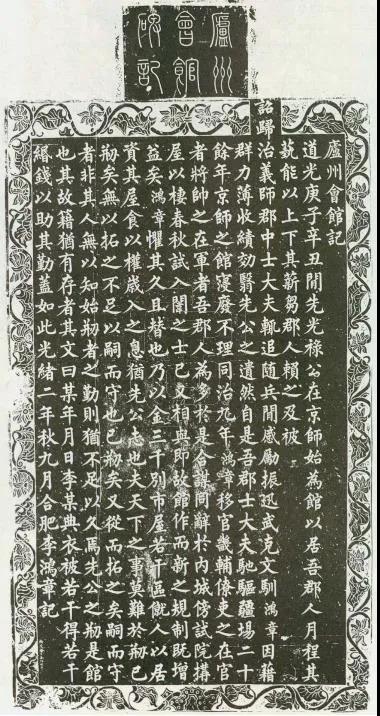 廬州
會館
碑記
廬州會館記
道光庚子辛丑閒先光祿公在京師始為館以居吾郡人月程其
蓺能以上下其薪芻郡人賴之及被
詔歸治義師郡中士大夫輒追隨兵閒感勵振迅武克文馴鴻章因藉
群力薄收績効翳先公之遺然自是吾郡士大夫馳驅疆場二十
餘年京師之館寖廢不理同治九年鴻章移官畿輔僚吏之在官
者將帥之在軍者吾郡人為多於是合謀同辭於内城傍試院搆
屋以棲春秋試入闈之士已又相與即故館作而新之規制既增
益矣鴻章懼其久且替也乃以金三千別市屋若干區僦人以居
資其屋食以權歲入之息猶先公志也夫天下之事莫難於刱已
刱矣無以拓之不足以嗣而守也已刱矣又從而拓之矣嗣而守
者非其人無以知始刱者之勤則猶不足以久焉先公之刱是館
也其故籍猶有存者其文曰某年月日李某典衣被若干得若干
緡錢以助其勤蓋如此光緒二年秋九月合肥李鴻章記